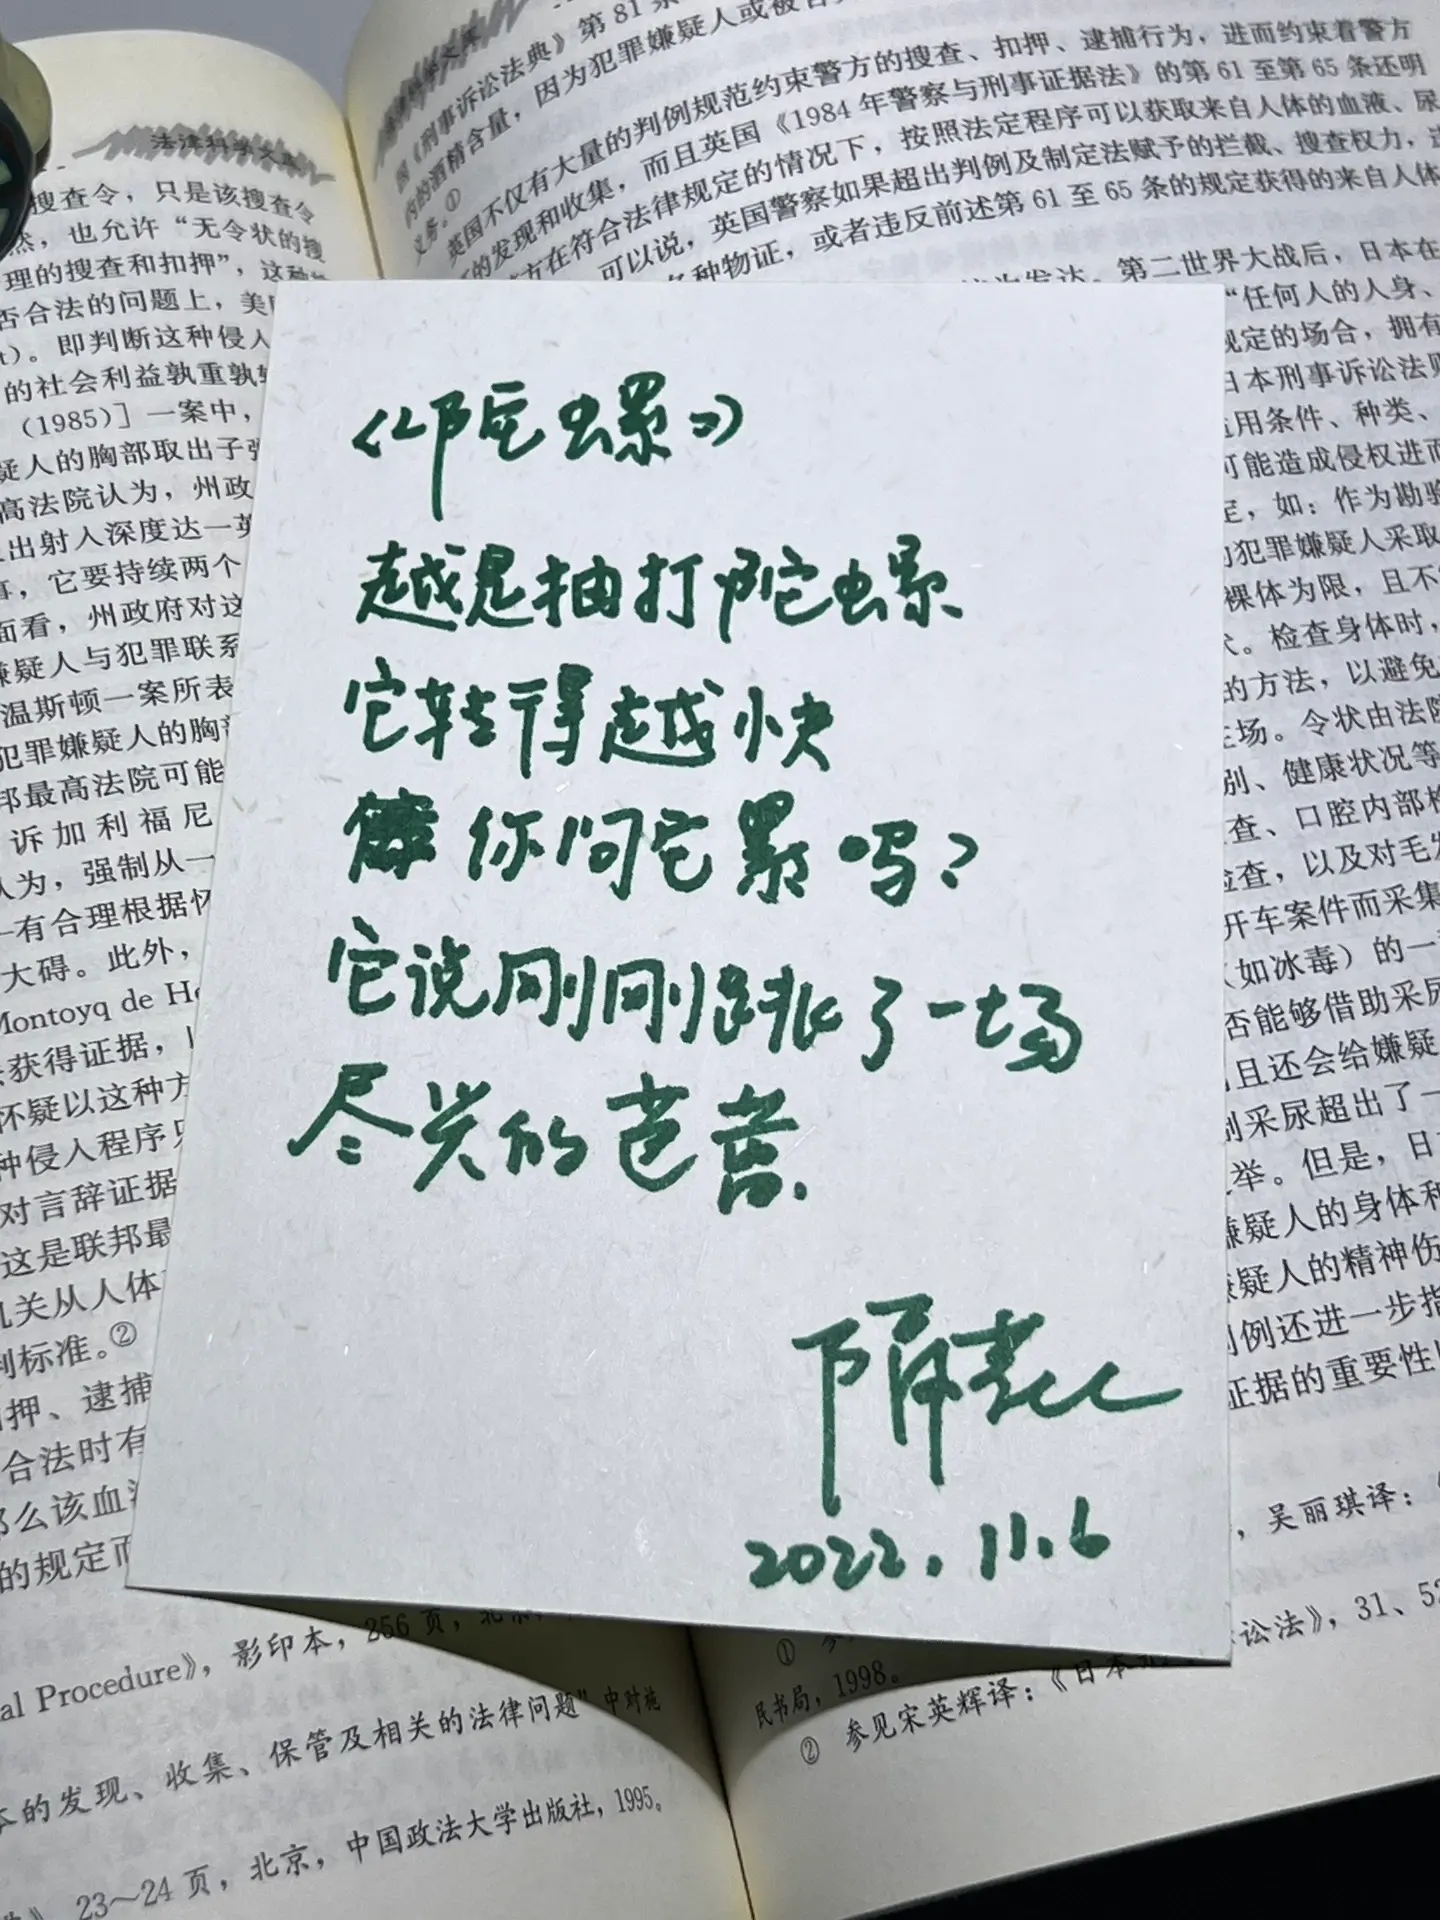 法律科学文库
搜查令，只是该搜查令
然，也允许“无令状的搜
理的搜查和扣押”，这种
否合法的问题上，美
t）。即判断这种侵入
的社会利益孰重孰轻
（1985）］一案中，
疑人的胸部取出子弹
高法院认为，州政
出射入深度达一英
，它要持续两个
面看，州政府对这
嫌疑人与犯罪联系
温斯顿一案所表
犯罪嫌疑人的胸部
邦最高法院可能
诉加利福尼
认为，强制从一
有合理根据怀
大碍。此外，
Montoyq de He
获得证据，
怀疑以这种方
种侵入程序
对言辞证据
这是联邦最
机关从人体
判标准。②
押、逮捕
合法时有
那么该血
的规定而
al Procedure》，影印本，256 页，北京，
本的发现、收集、保管及相关的法律问题”中对
》，23～24 页，北京，中国政法大学出版社，1995。
国《刑事诉讼法典》第 81 条
内的酒精含量，因为犯罪嫌疑人或被告
义务。①
英国不仅有大量的判例规范约束警方的搜查、扣押、逮捕行为，进而约束着警方
的发现和收集，而且英国《1984 年警察与刑事证据法》的第 61 至第 65 条还明
方在符合法律规定的情况下，按照法定程序可以获取来自人体的血液、尿
可以说，英国警察如果超出判例及制定法赋予的拦截、搜查权力，
各种物证，或者违反前述第 61 至 65 条的规定获得的来自人体
发达。第二世界大战后，日本在
“任何人的人身、
规定的场合，拥有
日本刑事诉讼法
适用条件、种类、
可能造成侵权进而
定，如：作为勘验
犯罪嫌疑人采取
裸体为限，且不
。检查身体时，
的方法，以避免
在场。令状由法院
别、健康状况等
查、口腔内部检
检查，以及对毛发
开车案件而采集
（如冰毒）的一
否能够借助采尿
且还会给嫌疑
制采尿超出了一
举。但是，日
嫌疑人的身体和
嫌疑人的精神伤
判例还进一步指
证据的重要性
，吴丽琪译：
讼法》，31、52
民书局，1998。
② 参见宋英辉译：《日本
《陀螺》
越是抽打陀螺
它转得越快
你问它累吗？
它说刚刚跳了一场
尽兴的芭蕾.
隔壳
2022.11.6